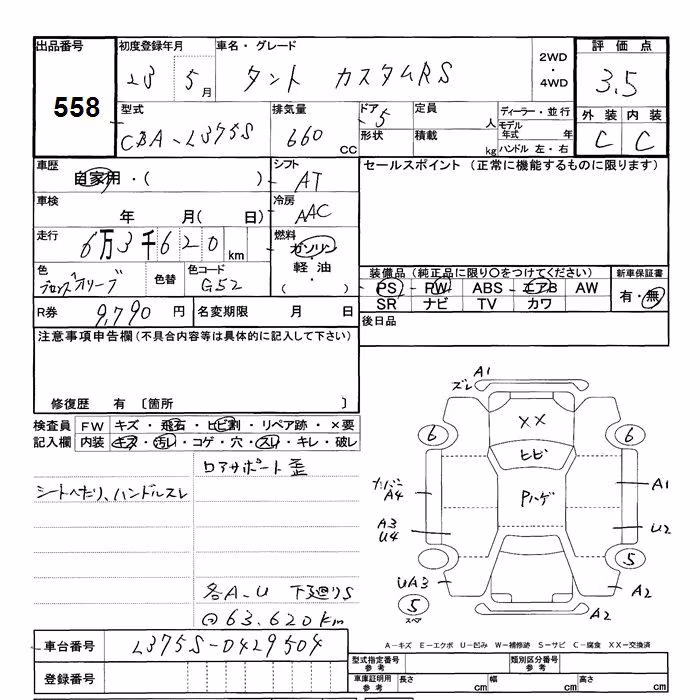 出品番号
558
初度登録年月
23 5月
車名・グレード
タント カスタムRS
2WD
・
4WD
評価点
3.5
型式
CBA-L375S
排気量
660 CC
ドア
5
定員
人
形状
積載
kg
ディーラー・並行
モデル年式 年
ハンドル 左・右
外装 内装
C C
車歴
自家用・( )
シフト
AT
セールスポイント (正常に機能するものに限ります)
車検
年 月( 日)
冷房
AAC
走行
6万3千620km
燃料
ガソリン
・
軽油
( )
色
色替
色コード
G52
装備品(純正品に限り○をつけてください)
PS PW ABS エアB AW
SR ナビ TV カワ
新車保証書
有・無
R券 9,790 円
名変期限 月 日
後日品
注意事項申告欄(不具合内容等は具体的に記入して下さい)
修復歴 有 〔箇所 〕
検査員 FW キズ・飛石・ヒビ割・リペア跡・×要
記入欄 内装 キズ・汚レ・コゲ・穴・スレ・キレ・破レ
シートへたり、ハンドルスレ
コアサポート歪
各A-U 下廻りS
@63.620km
ズレ A1
××
ヒビ
Pハゲ
6 6
A4
A3
U4
UA3
5
スペア
A1
U2
5
A2
A2
A-キズ E-エクボ U-凹み W-補修跡 S-サビ C-腐食 XX-交換済
車台番号 L375S-0429504
登録番号
型式指定番号
参考
類別区分番号
参考
車庫証明用
参考
長さ cm
幅 cm
高さ cm